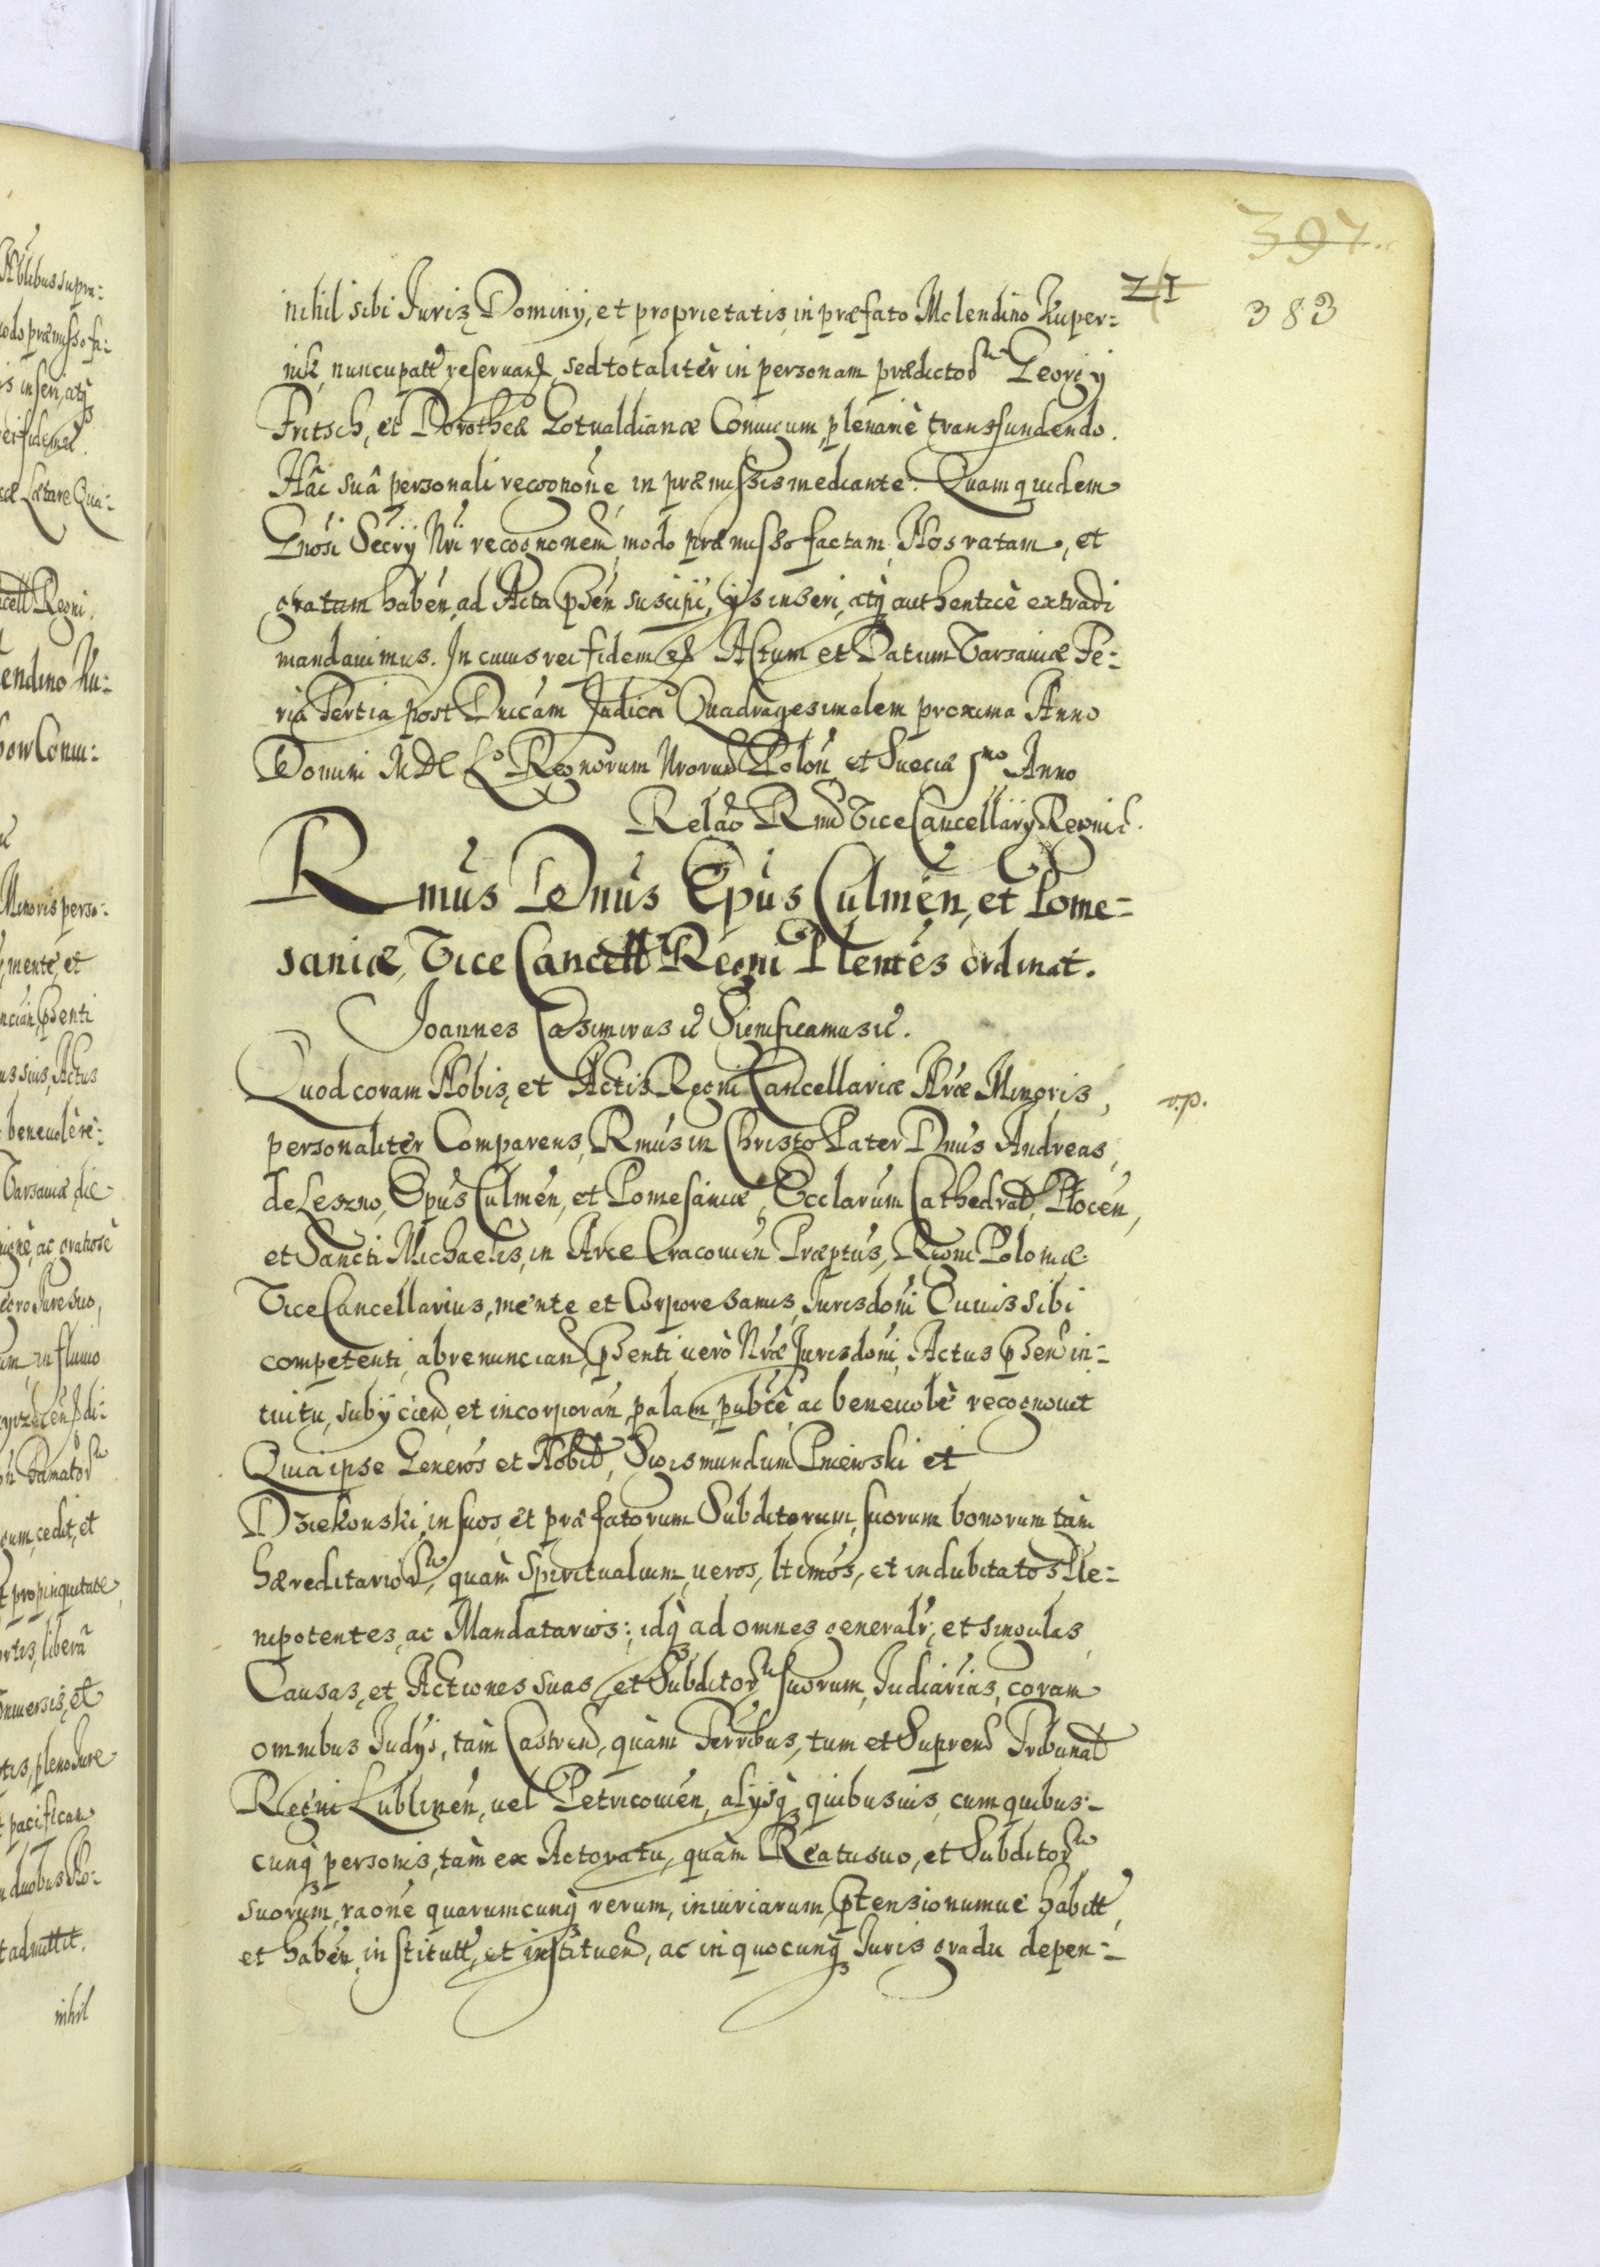 397.
383
nihil sibi Juris Dominij, et proprietatis in præfato Molendino Kuper-
nik nuncupatt reseruand, sed totalitèr in personam prædictor Georgij
Fritsch, et Dorotheæ Gotualdianæ Coniucum, plenariè transfundendo.
Hâc suâ personali recognone, in præmissis mediante. Quam quidem
Gnosi Secrij Nri recognonem, modo præmisso factam, Nos ratam, et
gratam haben, ad Acta pñsen suscipi, ijs inseri, atq authenticè extradi
mandauimus. In cuius rei fidem ec Actum et Datum Varsauiæ Fe-
ria Tertia post Dnicam Judica Quadragesimalem proxima Anno
Domini MDCLo Regnorum Nrorum Polon et Sueciæ 2do Anno
Relaõ Rmd ViceCancellarij Regni ec.
Rmus Dnus Epus Culmen, et Pome-
saniæ, ViceCancell Regni Plentes ordinat.
Joannes Casimirus ec Significamus ec.
Quod coram Nobis, et Actis Regni Cancellariæ Nræ Minoris,
v.p.
personalitèr Comparens, Rmus in Christo Pater Dnus Andreas,
de Leszno, Epus Culmen, et Pomesaniæ, Ecclarum Cathedrad, Plocen,
et Sancti Michaelis, in Arce Cracouien Præptus, Regni Poloniæ
ViceCancellarius, mente et Corpore sanus, Jurisdoni Cuiuis sibi
competenti, abrenuncian, pñsenti uerò Nræ Jurisdoni, Actus pñsen in-
tuitu, subijcien, et incorporan, palam, publcè, ac beneuolè recognouit
Quia ipse Generos et Nobil, Sigismundum Pniewski et
Dziekonski, in suos, et præfatorum Subditorum, suorum bonorum tàm
hæreditarior, quàm Spiritualium, ueros, ltimos, et indubitatos Ple-
nipotentes, ac Mandatarios; idq ad omnes generalr, et singulas
Causas, et Actiones suas, et Subditor suorum, Judiarias, coram
omnibus Judys, tàm Castren, quàm Terribus, tum et Supren Tribunal
Regni Lublinen, uel Petricouien, alysq quibusuis, cum quibus-
cunq personis, tàm ex Actoratu, quàm Reatu suo, et Subditor
suorum, raone quarumcunq rerum, iniuriarum, ptensionumue habitt,
et haben, institutt, et instituen, ac in quocunq Juris gradu depen-